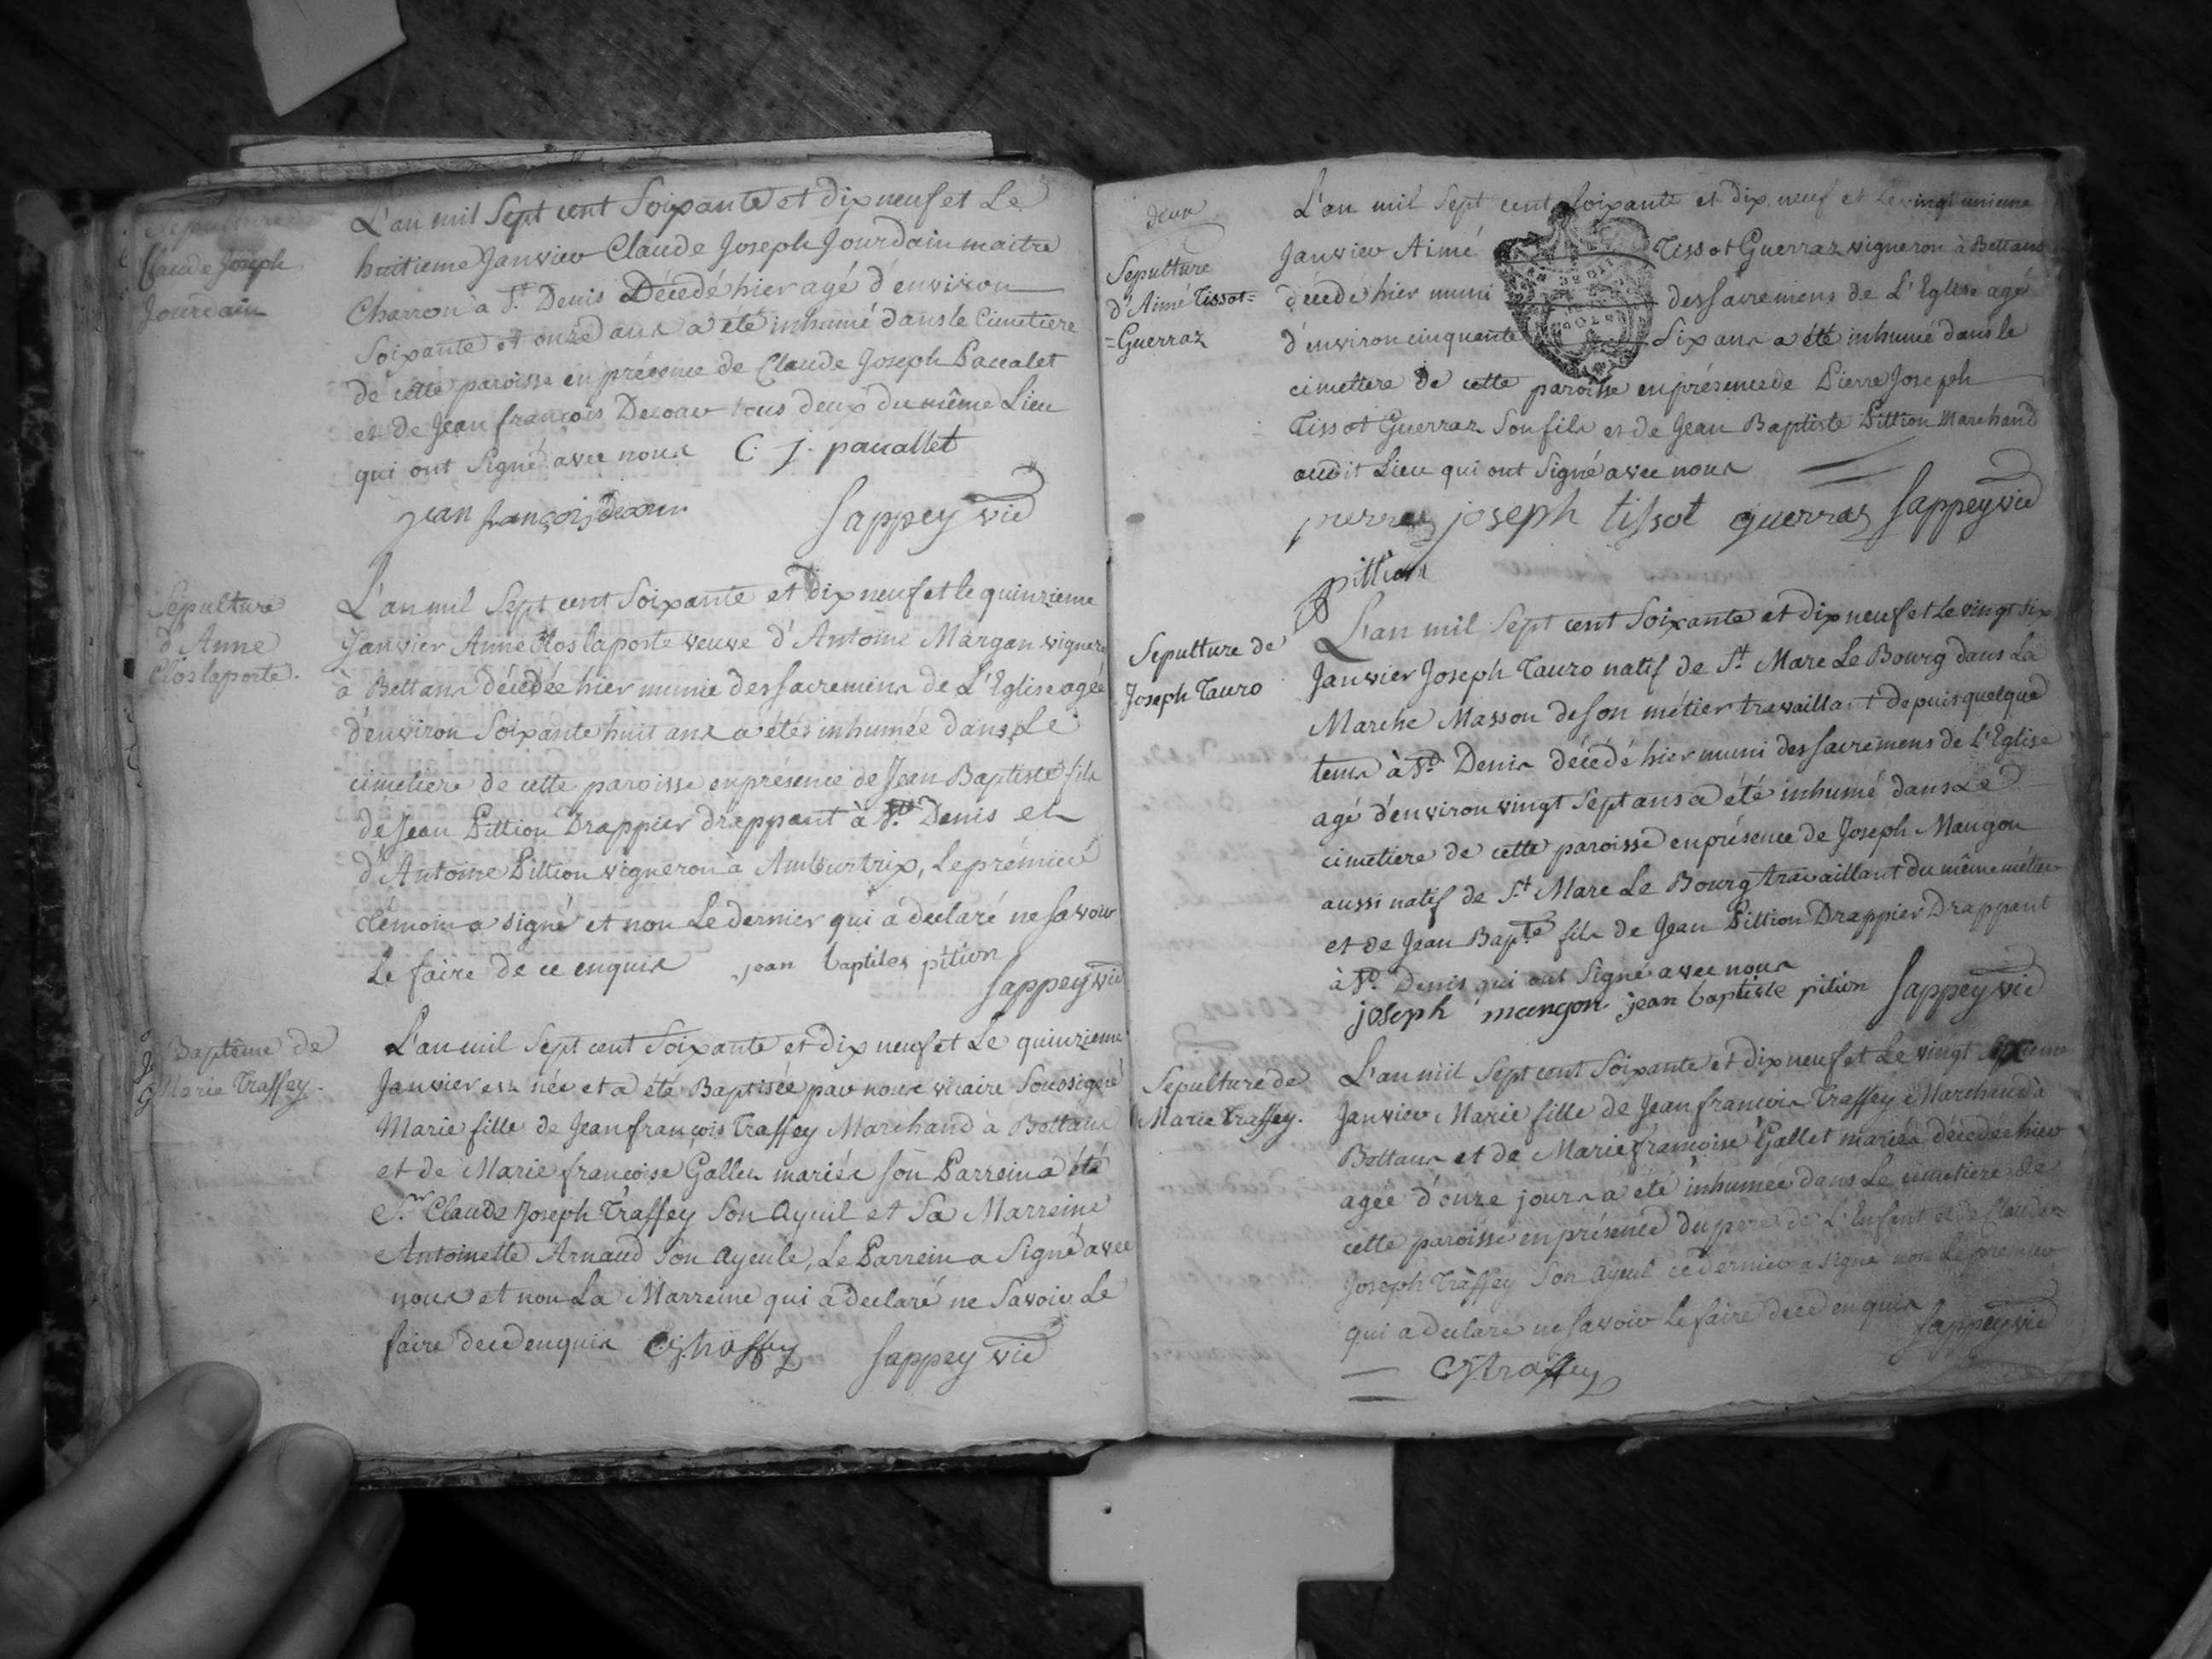 Sepulture de
Claude Joseph
Jourdain
L'an mil Sept cent Soixante et dix neuf et Le
huitieme Janvier Claude Joseph Jourdain maitre
Charron à St Denis Décedé hier agé d'environ
Soixante et onze ans a eté inhumé dans le Cimetiere
de cette paroisse en présence de Claude Joseph Paccalet
et de Jean françois Decoeur tous deux du même Lieu
qui ont Signé avec nous C. j. pacallet
jean françois
Sappey vic
Sepulture
d'Anne
Clos laporte.
L'an mil Sept cent Soixante et dix neuf et le quinzieme
Janvier Anne Clos laporte veuve d'Antoine Margan vigneron
à Bettans décedée hier munie des sacremens de L'Eglise agée
d'environ Soixante huit ans a étés inhumée dans Le
cimetiere de cette paroisse en présence de Jean Baptiste fils
de Jean Pittion Drappier drappant à St Denis et
d'Antoine Pittion vigneron à Ambutrix, Le prémier
témoin a signé et non Le dernier qui á declaré ne savoir
Le faire de ce enquis jean baptiles pition
Sappey vic
Baptême de
Marie Traffey.
L'an mil Sept cent Soixante et dix neuf et Le quinzieme
Janvier est née et a été Baptisée par nous vicaire Soussigné
Marie fille de Jean françois Traffey Marchand à Bettans
et de Marie françoise Gallet mariés son Parrein a été
Sr Claude Joseph Traffey Son Ayeuil et Sa Marreine
Antoinette Arnaud Son Ayeule, Le Parrein a Signé avec
nous et non La Marreine qui a declaré ne Savoir Le
faire de ce enquis C j traffey Sappey vic
deux
Sepulture
d'Aimé Tissot=
=Guerraz
L'an mil Sept cent Soixante et dix neuf et le vingt unieme
Janvier Aimé Tissot Guerraz vigneron à Bettans
décedé hier muni des Sacremens de L'Eglise agé
d'environ cinquante Six ans a été inhumé dans le
cimetiere de cette paroisse en présence de Pierre Joseph
Tissot Guerraz Son fils et de Jean Baptiste Pittion Marchand
audit Lieu qui ont Signé avec nous
pierre joseph tissot guerraz Sappey vic
pittion
Sepulture de
Joseph Tauro
L'an mil Sept cent Soixante et dix neuf et Le vingt six
Janvier Joseph Tauro natif de St Marc Le Bourg dans La
Marche Masson de son métier travaillant depuis quelque
tems à St Denis décédé hier muni des sacremens de L'Eglise
agé d'environ vingt Sept ans a été inhumé dans Le
cimetiere de cette paroisse en présence de Joseph Mangon
aussi natif de St Marc Le Bourg travaillant du même métier
et de Jean Bapte fils de Jean Pittion Drappier Drappant
à St Denis qui ont Signé avec nous
joseph mangon jean baptiste pition Sappey vic
Sepulture de
Marie Traffey.
L'an mil Sept cent Soixante et dix neuf et Le vingt Sixieme
Janvier Marie fille de Jean francois Traffey Marchand à
Bettans et de Marie françoise Gallet mariés décedée hier
agée d'onze jours a été inhumée dans Le cimetiere de
cette paroisse en présence du pere de L'Enfant et de Claude
Joseph Traffey Son Ayeul ce dernier a signé non Le premier
qui a declaré ne Savoir Le faire de ce enquis Sappey vic
C j traffey